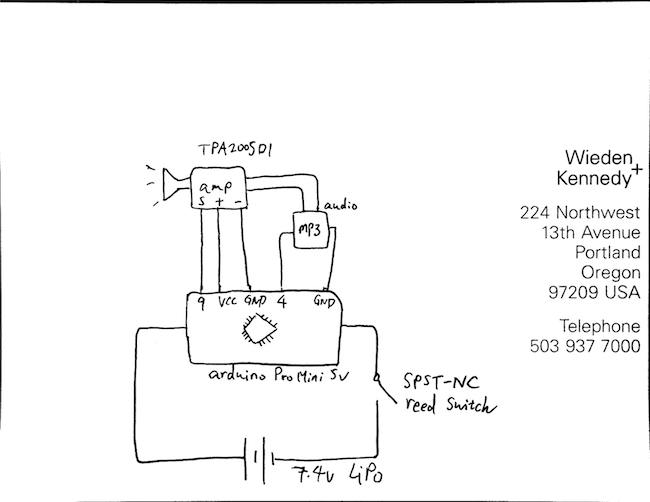 TPA2005D1
amp
S + -
audio
MP3
9 VCC GND 4 GND
arduino Pro Mini 5V
SPST-NC
reed switch
7.4v LiPo
Wieden
Kennedy+
224 Northwest
13th Avenue
Portland
Oregon
97209 USA
Telephone
503 937 7000